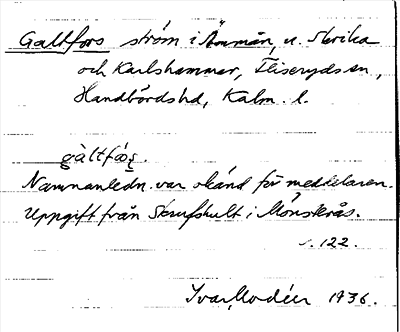 Galtfors ström i Ämmån, n. Skrika
och Karlshammar, Fliseryds sn,
Handbörds hd, Kalm. l.
gàltfɷʂ.
Namnanledn. var okänd för meddelaren.
Uppgift från Skrufshult i Mönsterås.
s. 122.
Ivar Modéer 1936.